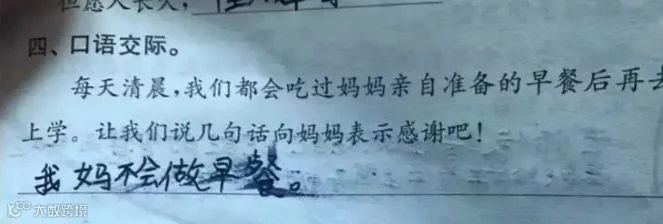 但愿人长久，
四、口语交际。
每天清晨，我们都会吃过妈妈亲自准备的早餐后再去
上学。让我们说几句话向妈妈表示感谢吧！
我妈不会做早餐。
大数跨境